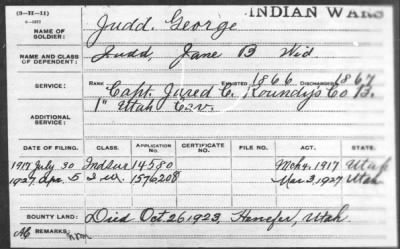 (3-H-11)
INDIAN WARS
NAME OF SOLDIER: Judd, George
NAME AND CLASS OF DEPENDENT: Judd, Jane B Wid
SERVICE: RANK ENLISTED 1866 DISCHARGED 1867
Capt. Jared C. Roundy's Co B.
1" Utah Cav.
ADDITIONAL SERVICE:
DATE OF FILING. CLASS. APPLICATION NO. CERTIFICATE NO. FILE NO. ACT. STATE.
1917 July 30 Ind Sur 14580 Mch 4, 1917 Utah
1927 Apr. 5 I W. 1576208 Mar 3, 1927 Utah
BOUNTY LAND: Died Oct 26 1923, Henefer, Utah.
REMARKS: